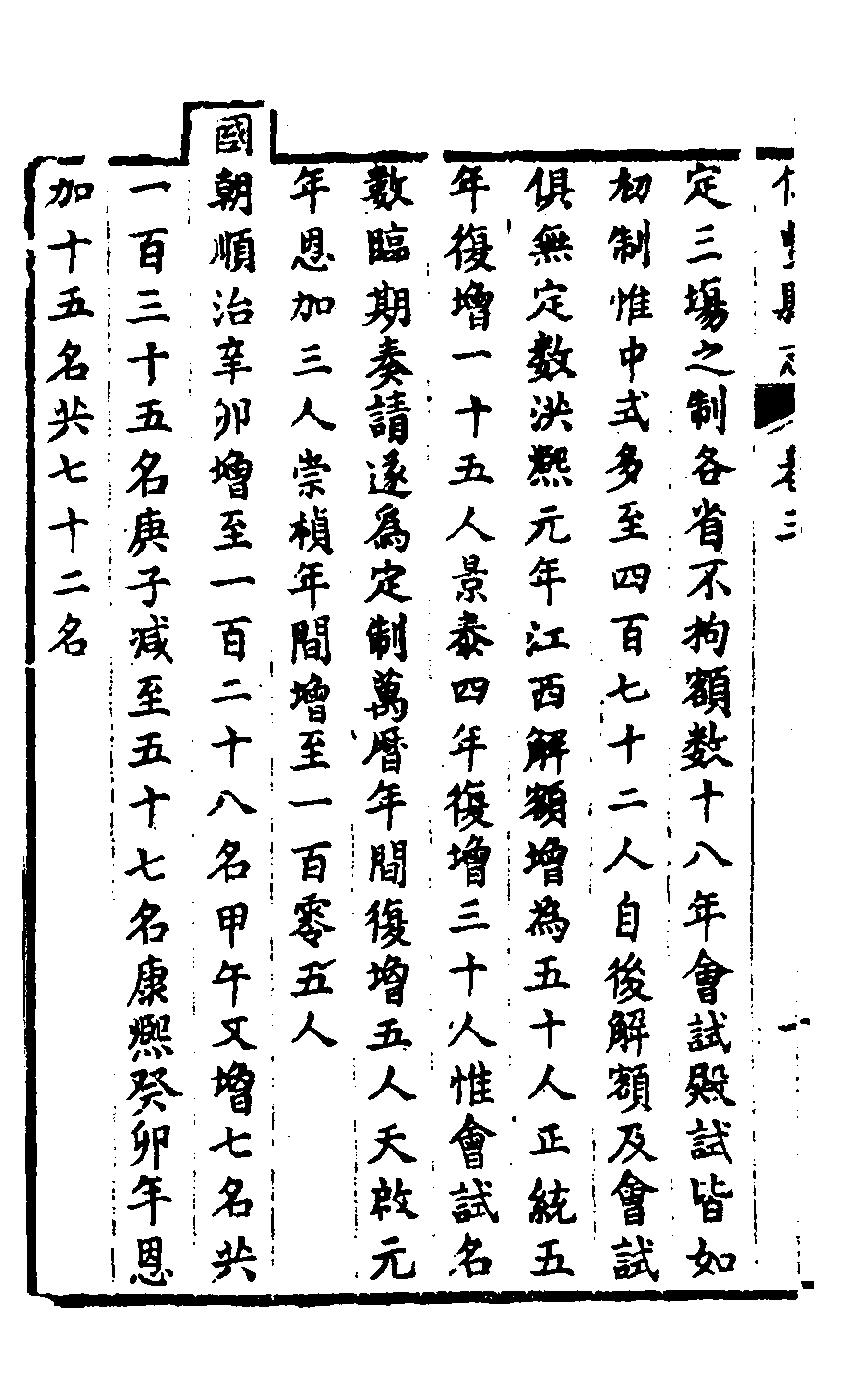 卷三
定三塲之制各省不拘額数十八年會試殿試皆如
初制惟中式多至四百七十二人自後解額及會試
俱無定数洪熙元年江西解額增為五十人正統五
年復增一十五人景泰四年復增三十人惟會試名
數臨期奏請遂爲定制萬曆年間復增五人天啟元
年恩加三人崇楨年間增至一百零五人
國朝順治辛卯增至一百二十八名甲午又增七名共
一百三十五名庚子减至五十七名康熙癸卯年恩
加十五名共七十二名